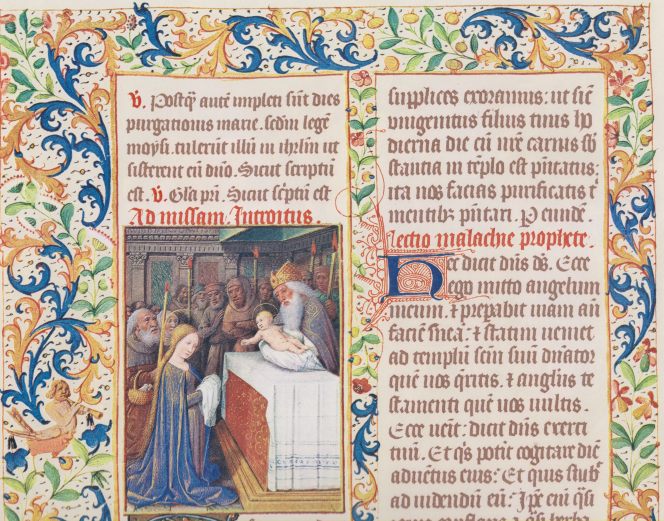 V. Postq̄ autē impleti sūt dies
purgationis marie. sedm̄ legē
moysi. tulerūt illū in ihrlm̄ ut
sisterent eū dn̄o. Sicut scriptū
est. V. Gl̄a pr̄i. Sicut sc̄ptū est
Ad missam Introitus.
supplices exoramus: ut sic̄
vnigenitus filius tuus ho
dierna die cū nr̄e carnis sb̄
stantia in tēplo est p̄ntatus:
ita nos facias purificatis t̄
mentibꝫ p̄ntari. P eundē.
Lectio malachie prophete.
Hec dicit dn̄s ds̄. Ecce
ego mitto angelum
meum. ⁊ p̄parabit viam an̄
faciē meā. ⁊ statim veniet
ad templū sc̄m suū dn̄ator
quē vos q̄ritis. ⁊ angl̄us te
stamenti quē vos vultis.
Ecce venit: dicit dn̄s exerci
tuū. Et q̄s potit cogitare diē
aduētus eius: Et quis stabt̄
ad uidendū eū: Ip̄e eni q̄si